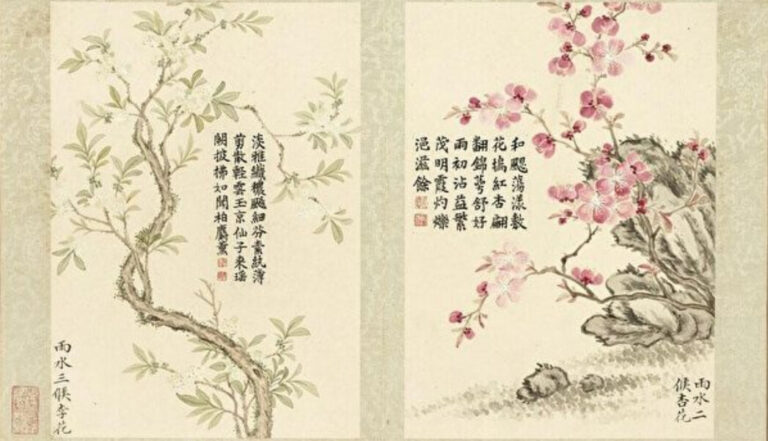 和颸蕩漾敷
花塢紅杏翩
翻錦萼舒好
雨初沾益繁
茂明霞灼爍
浥滋餘
雨水二
候杏花
淡雅纖穠細芬素紈薄
剪散輕雲玉京仙子來瑤
闕披拂如聞柏麝薰
雨水三候李花